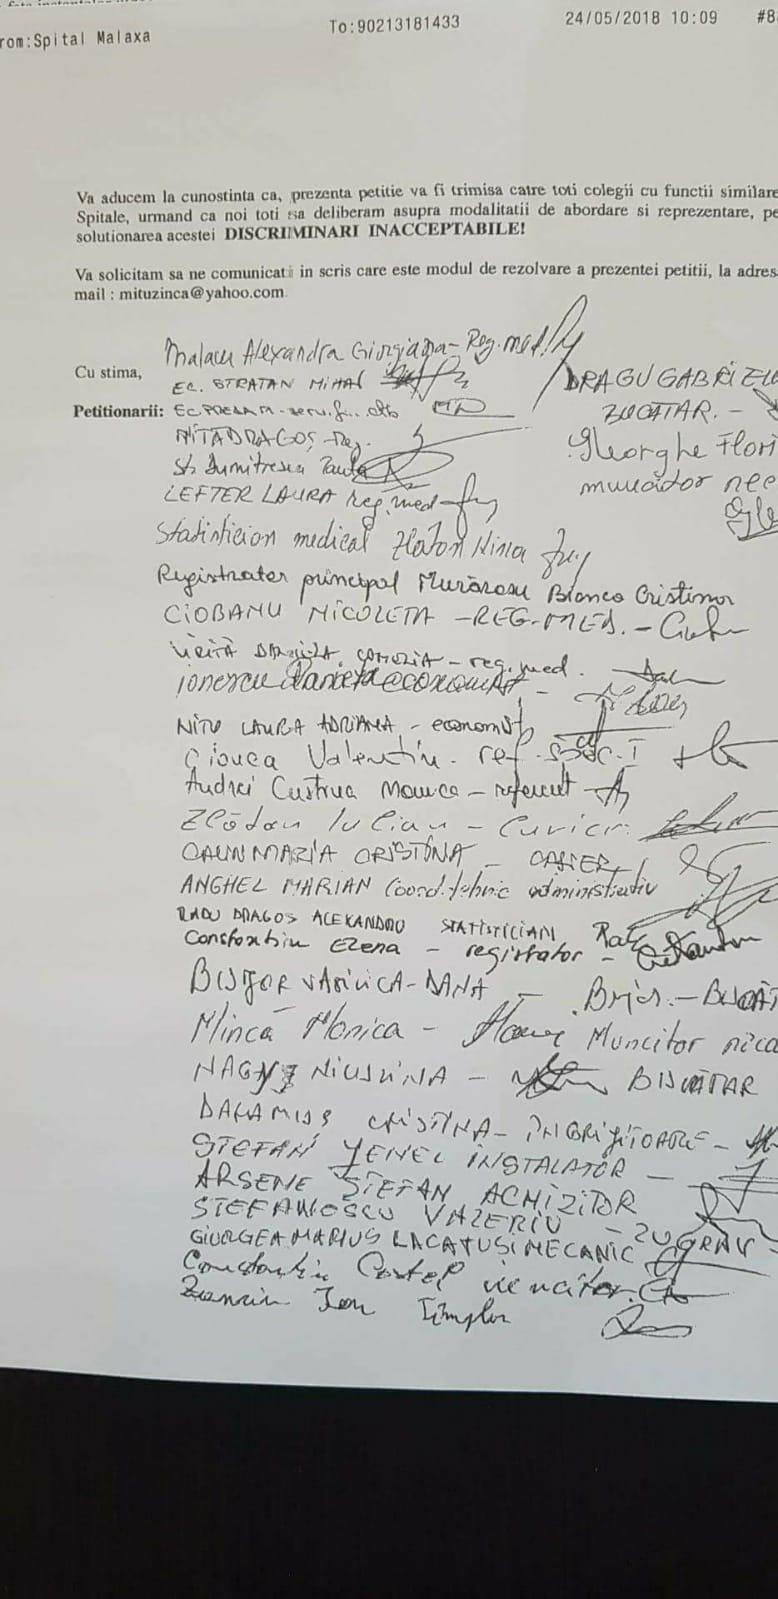 rom:Spital Malaxa To:90213181433 24/05/2018 10:09 #8
Va aducem la cunostinta ca, prezenta petitie va fi trimisa catre toti colegii cu functii similare
Spitale, urmand ca noi toti sa deliberam asupra modalitatii de abordare si reprezentare, pe
solutionarea acestei DISCRIMINARI INACCEPTABILE!
Va solicitam sa ne comunicati in scris care este modul de rezolvare a prezentei petitii, la adres
mail : mituzinca@yahoo.com
Malaeu Alexandra Giorgiana - Reg. med.
Cu stima,
EC. STRATAN MIHAI
DRAGU GABRIELA
BUCATAR. -
Petitionarii:
NITA DRAGOȘ - Reg.
Gheorghe Flori
St. Dumitrescu Paula
muncitor nec
LEFTER LAURA Reg. med
Statistician medical Nina
Registrator principal Murărașu Bianca Cristina
CIOBANU NICOLETA - REG. MED. -
- reg. med.
Ionescu Daniela economist -
NITU LAURA ADRIANA - economist
Valentin - ref. I
Andrei Monica - referent
Zlătan Iulian - Curier
MARIA CRISTINA - CASIER
ANGHEL MARIAN Coord. tehnic administrativ
RADU DRAGOS ALEXANDRU STATISTICIAN
Constantin Elena - registrator -
- DANA -
Mincă Monica - Muncitor
NAGY NIUSINA - BUCĂTAR
CRISTINA - INGRIJITOARE -
STEFAN JENEL INSTALATOR -
ARSENE STEFAN ACHIZITOR
STEFANESCU VALERIU - ZUGRAV
GIURGEA MARIUS LACATUS MECANIC
Constantin Costel
Ion Timplar